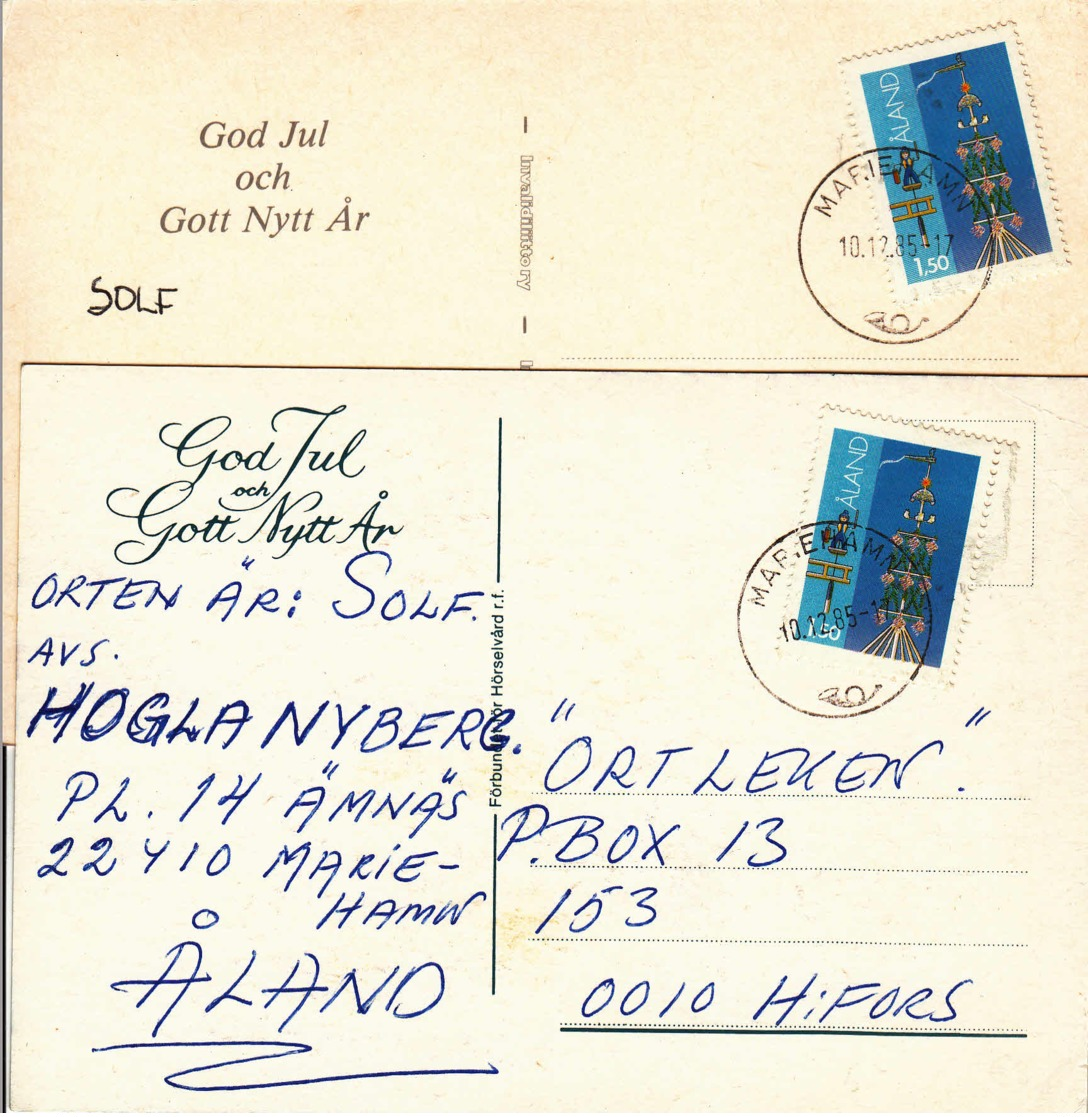 God Jul
och
Gott Nytt År
SOLF
Invalidiliitto ry
ÅLAND
1,50
MARIEHAMN
10.12.85-17
God Jul
och
Gott Nytt År
ORTEN ÄR: SOLF.
AVS.
HÖGLA NYBERG.
PL. 14 ÄMNÄS
22410 MARIE-
HAMN
ÅLAND
Förbundet för Hörselvård r.f.
ÅLAND
1,50
MARIEHAMN
10.12.85-17
"ORTLEKEN".
P.BOX 13
153
0010 H:FORS